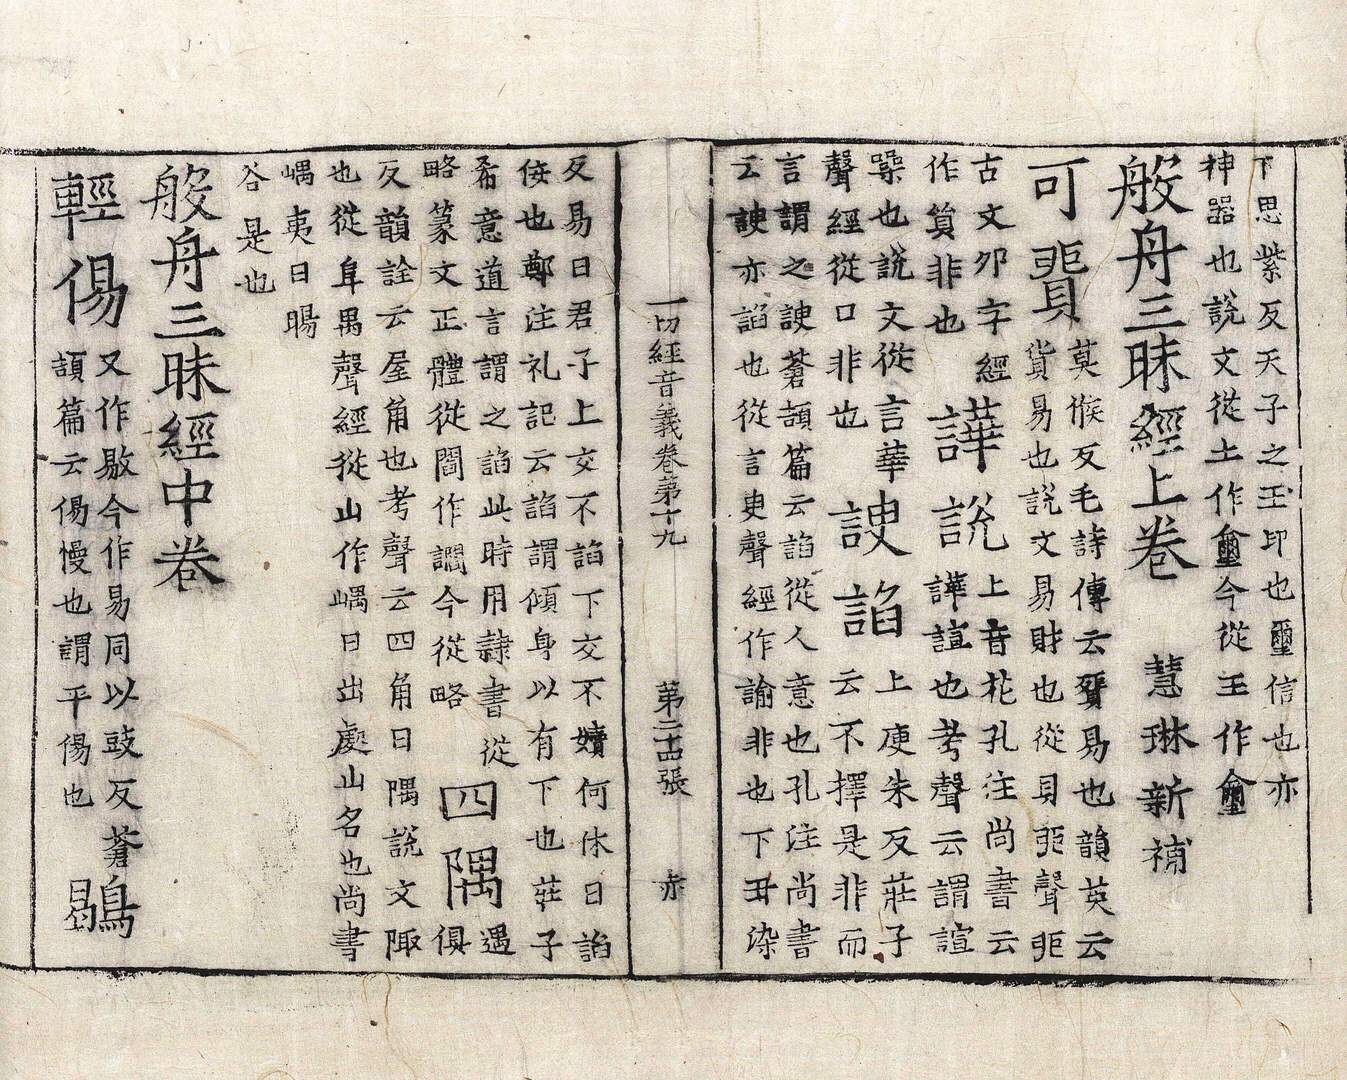 下思紫反天子之玉印也璽信也亦
神器也說文從土作壐今從玉作璽
般舟三昧經上卷　慧琳新補
可貿　莫候反毛詩傳云貿易也韻英云
貨易也說文易財也從貝丣聲丣
古文卯字經
作貿非也
譁說　上音花孔注尚書云
譁諠也考聲云謂諠
譟也說文從言華
聲經從口非也
諛諂　上庾朱反莊子
云不擇是非而
言謂之諛蒼頡篇云諂從人意也孔注尚書
云諛亦諂也從言臾聲經作諭非也下丑染
一切經音義卷第十九　第二十四張　赤
反易曰君子上交不諂下交不黷何休曰諂
佞也鄭注礼記云諂謂傾身以有下也莊子
希意道言謂之諂此時用隸書從
略篆文正體從閻作讇今從略
四隅　遇
俱
反韻詮云屋角也考聲云四角曰隅說文陬
也從阜禺聲經從山作嵎日出處山名也尚書
嵎夷曰暘
谷是也
般舟三昧經中卷
輕傷　又作敭今作易同以豉反蒼
頡篇云傷慢也謂平傷也
鶡